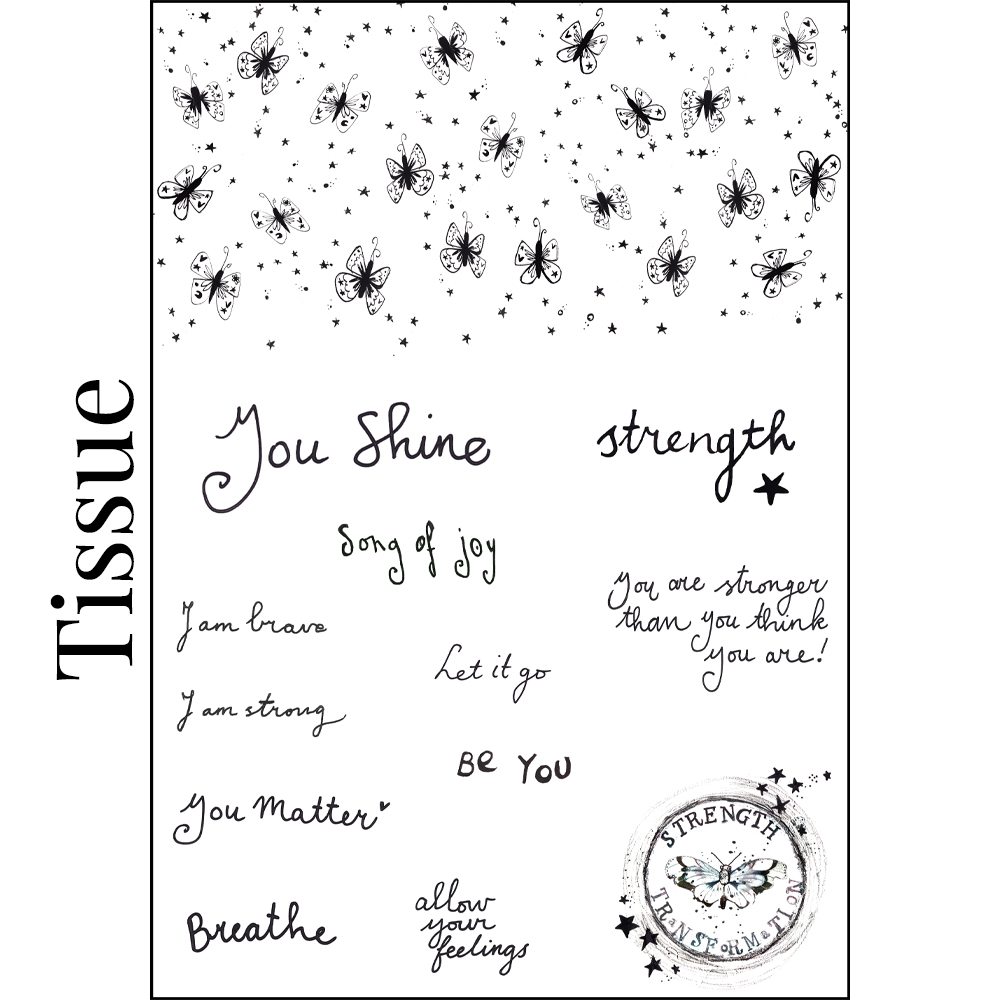 Tissue
You Shine
strength
Song of joy
You are stronger
than you think
you are!
I am brave
Let it go
I am strong
Be You
You Matter
STRENGTH
TRaNSFoRMaTIoN
Breathe
allow
your
feelings